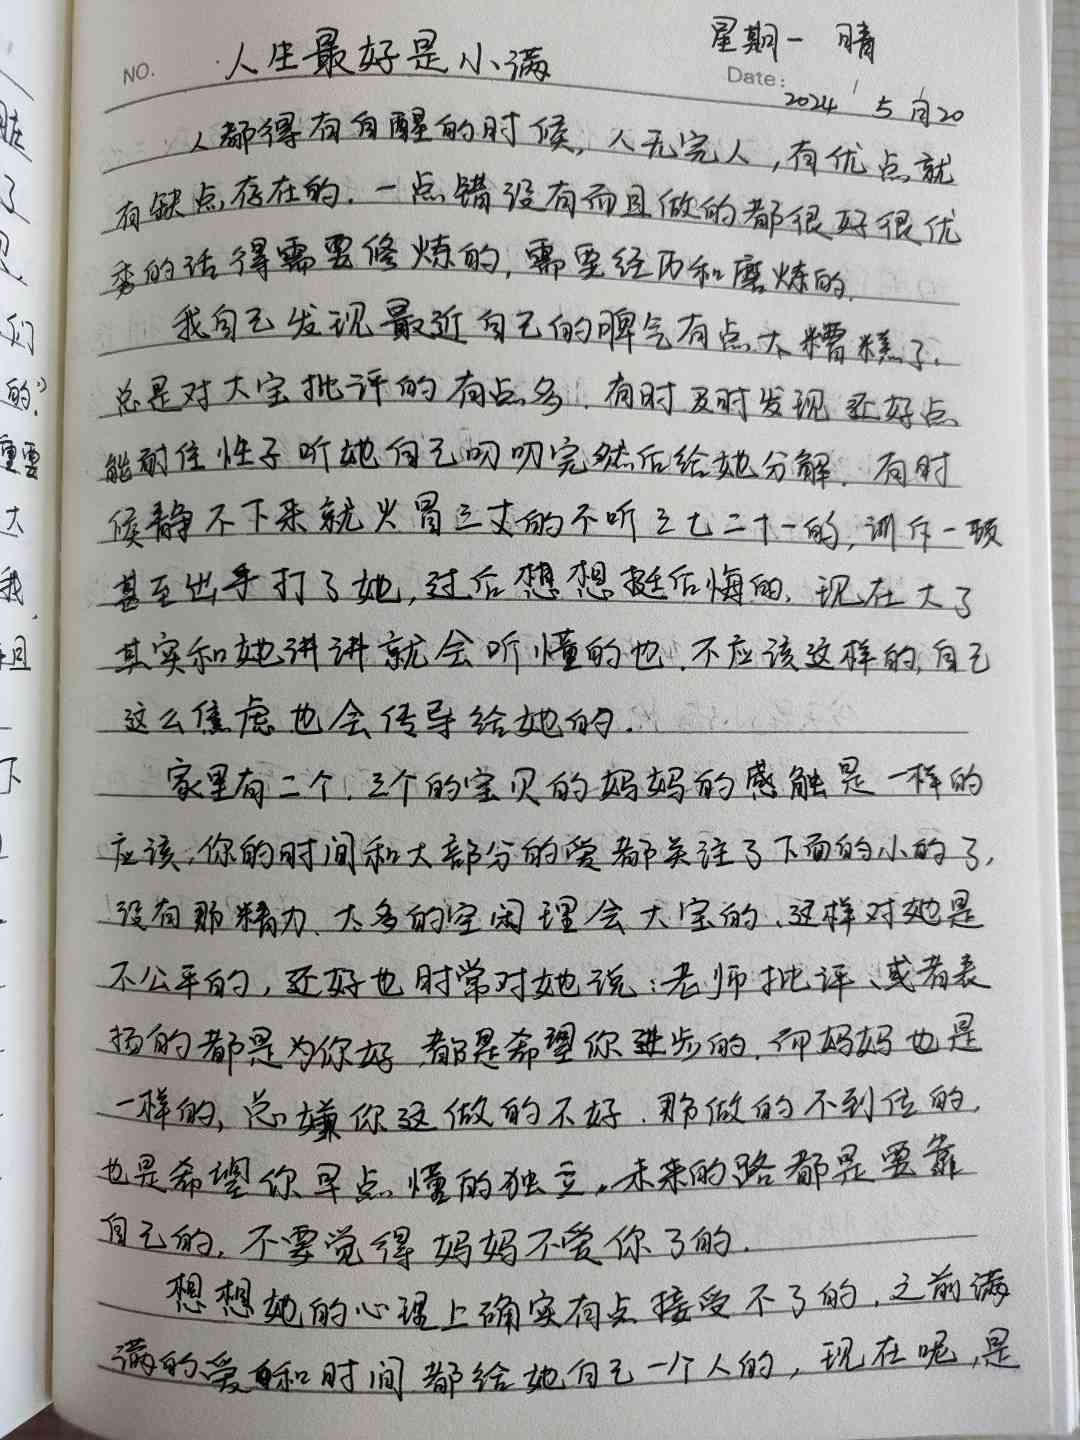 星期一 晴
NO. 人生最好是小满
Date: 2024 5月20
人都得有自醒的时候，人无完人，有优点就
有缺点存在的.一点错没有而且做的都很好很优
秀的话得需要修炼的,需要经历和磨炼的.
我自己发现最近自己的脾气有点太糟糕了.
总是对大宝批评的有点多.有时及时发现还好点
能耐住性子听她自己叨叨完然后给她分解.有时
候静不下来就火冒三丈的不听三七二十一的,训斥一顿
甚至出手打了她,过后想想挺后悔的.现在大了
其实和她讲讲就会听懂的也.不应该这样的,自己
这么焦虑也会传导给她的.
家里有二个.三个的宝贝的妈妈的感触是一样的
应该,你的时间和大部分的爱都关注了下面的小的了,
没有那精力、太多的空闲理会大宝的、这样对她是
不公平的,还好也时常对她说:老师批评、或者表
扬的都是为你好 都是希望你进步的.而妈妈也是
一样的,总嫌你这做的不好.那做的不到位的.
也是希望你早点懂的独立,未来的路都是要靠
自己的,不要觉得妈妈不爱你了的.
想想她的心理上确实有点接受不了的,之前满
满的爱和时间都给她自己一个人的,现在呢,是
脏
了
见
们
的?"
重要
大
我,
下